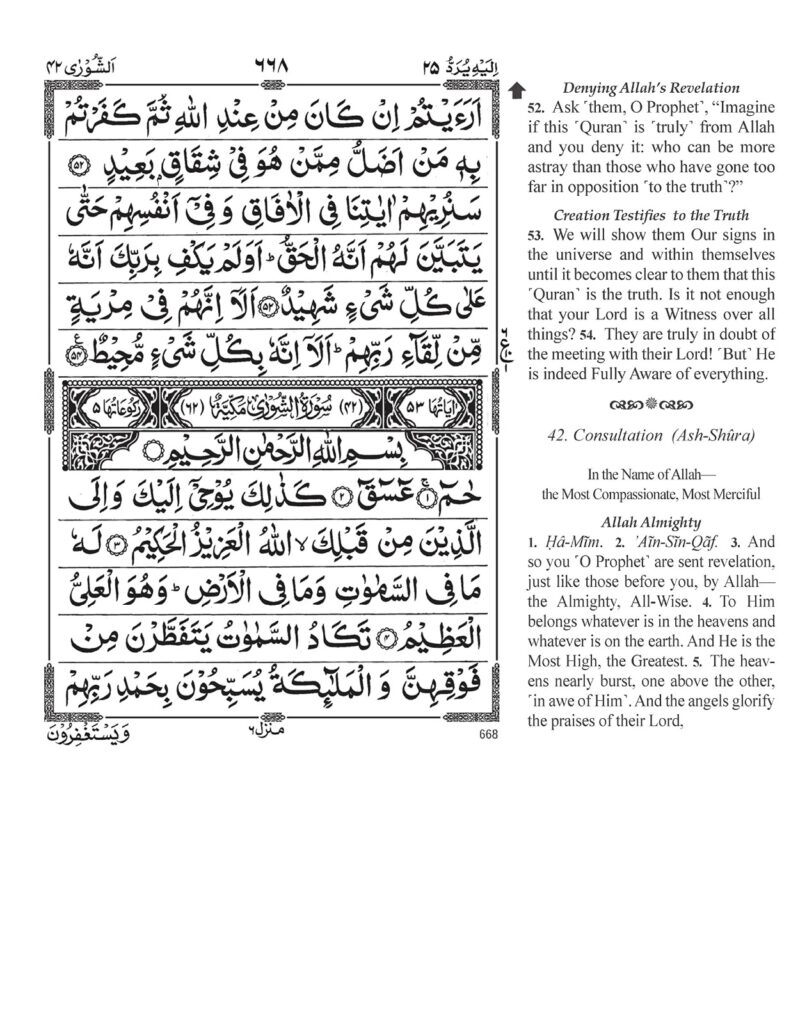 اِلَيْهِ يُرَدُّ ٢٥
٦٦٨
اَلشُّوْرٰى ٤٢
اَرَءَيْتُمْ اِنْ كَانَ مِنْ عِنْدِ اللّٰهِ ثُمَّ كَفَرْتُمْ
بِهٖ مَنْ اَضَلُّ مِمَّنْ هُوَ فِيْ شِقَاقٍۭ بَعِيْدٍ ﴿٥٢﴾
سَنُرِيْهِمْ اٰيٰتِنَا فِي الْاٰفَاقِ وَ فِيْٓ اَنْفُسِهِمْ حَتّٰى
يَتَبَيَّنَ لَهُمْ اَنَّهُ الْحَقُّ ؕ اَوَلَمْ يَكْفِ بِرَبِّكَ اَنَّهٗ
عَلٰى كُلِّ شَيْءٍ شَهِيْدٌ ﴿٥٣﴾ اَلَاۤ اِنَّهُمْ فِيْ مِرْيَةٍ
مِّنْ لِّقَآءِ رَبِّهِمْ ؕ اَلَاۤ اِنَّهٗ بِكُلِّ شَيْءٍ مُّحِيْطٌ ﴿٥٤﴾
اٰيَاتُهَا ٥٣ (٤٢) سُوْرَةُ الشُّوْرٰى مَكِّيَّةٌ (٦٢) رُكُوْعَاتُهَا ٥
بِسْمِ اللّٰهِ الرَّحْمٰنِ الرَّحِيْمِ
حٰمٓ ﴿١﴾ عٓسٓقٓ ﴿٢﴾ كَذٰلِكَ يُوْحِيْٓ اِلَيْكَ وَاِلَى
الَّذِيْنَ مِنْ قَبْلِكَ ۙ اللّٰهُ الْعَزِيْزُ الْحَكِيْمُ ﴿٣﴾ لَهٗ
مَا فِي السَّمٰوٰتِ وَمَا فِي الْاَرْضِ ؕ وَهُوَ الْعَلِيُّ
الْعَظِيْمُ ﴿٤﴾ تَكَادُ السَّمٰوٰتُ يَتَفَطَّرْنَ مِنْ
فَوْقِهِنَّ وَ الْمَلٰٓئِكَةُ يُسَبِّحُوْنَ بِحَمْدِ رَبِّهِمْ
وَيَسْتَغْفِرُوْنَ
منزل ٦
668
Denying Allah’s Revelation
52. Ask ˹them, O Prophet˺, “Imagine
if this ˹Quran˺ is ˹truly˺ from Allah
and you deny it: who can be more
astray than those who have gone too
far in opposition ˹to the truth˺?”
Creation Testifies to the Truth
53. We will show them Our signs in
the universe and within themselves
until it becomes clear to them that this
˹Quran˺ is the truth. Is it not enough
that your Lord is a Witness over all
things? 54. They are truly in doubt of
the meeting with their Lord! ˹But˺ He
is indeed Fully Aware of everything.
42. Consultation (Ash-Shûra)
In the Name of Allah—
the Most Compassionate, Most Merciful
Allah Almighty
1. Ḥâ-Mĩm. 2. ’Aĩn-Sĩn-Qãf. 3. And
so you ˹O Prophet˺ are sent revelation,
just like those before you, by Allah—
the Almighty, All-Wise. 4. To Him
belongs whatever is in the heavens and
whatever is on the earth. And He is the
Most High, the Greatest. 5. The heav-
ens nearly burst, one above the other,
˹in awe of Him˺. And the angels glorify
the praises of their Lord,